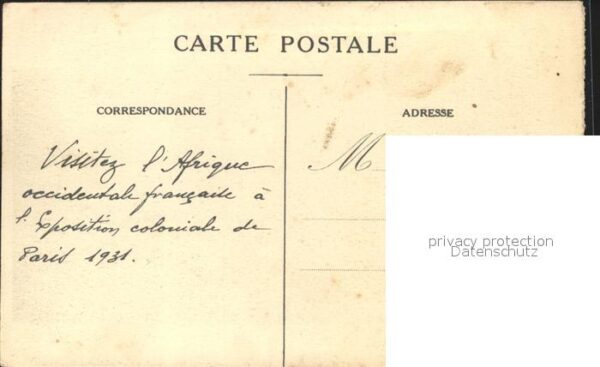 CARTE POSTALE
CORRESPONDANCE
ADRESSE
Visitez l'Afrique
occidentale française à
l'Exposition coloniale de
Paris 1931.
M
privacy protection
Datenschutz